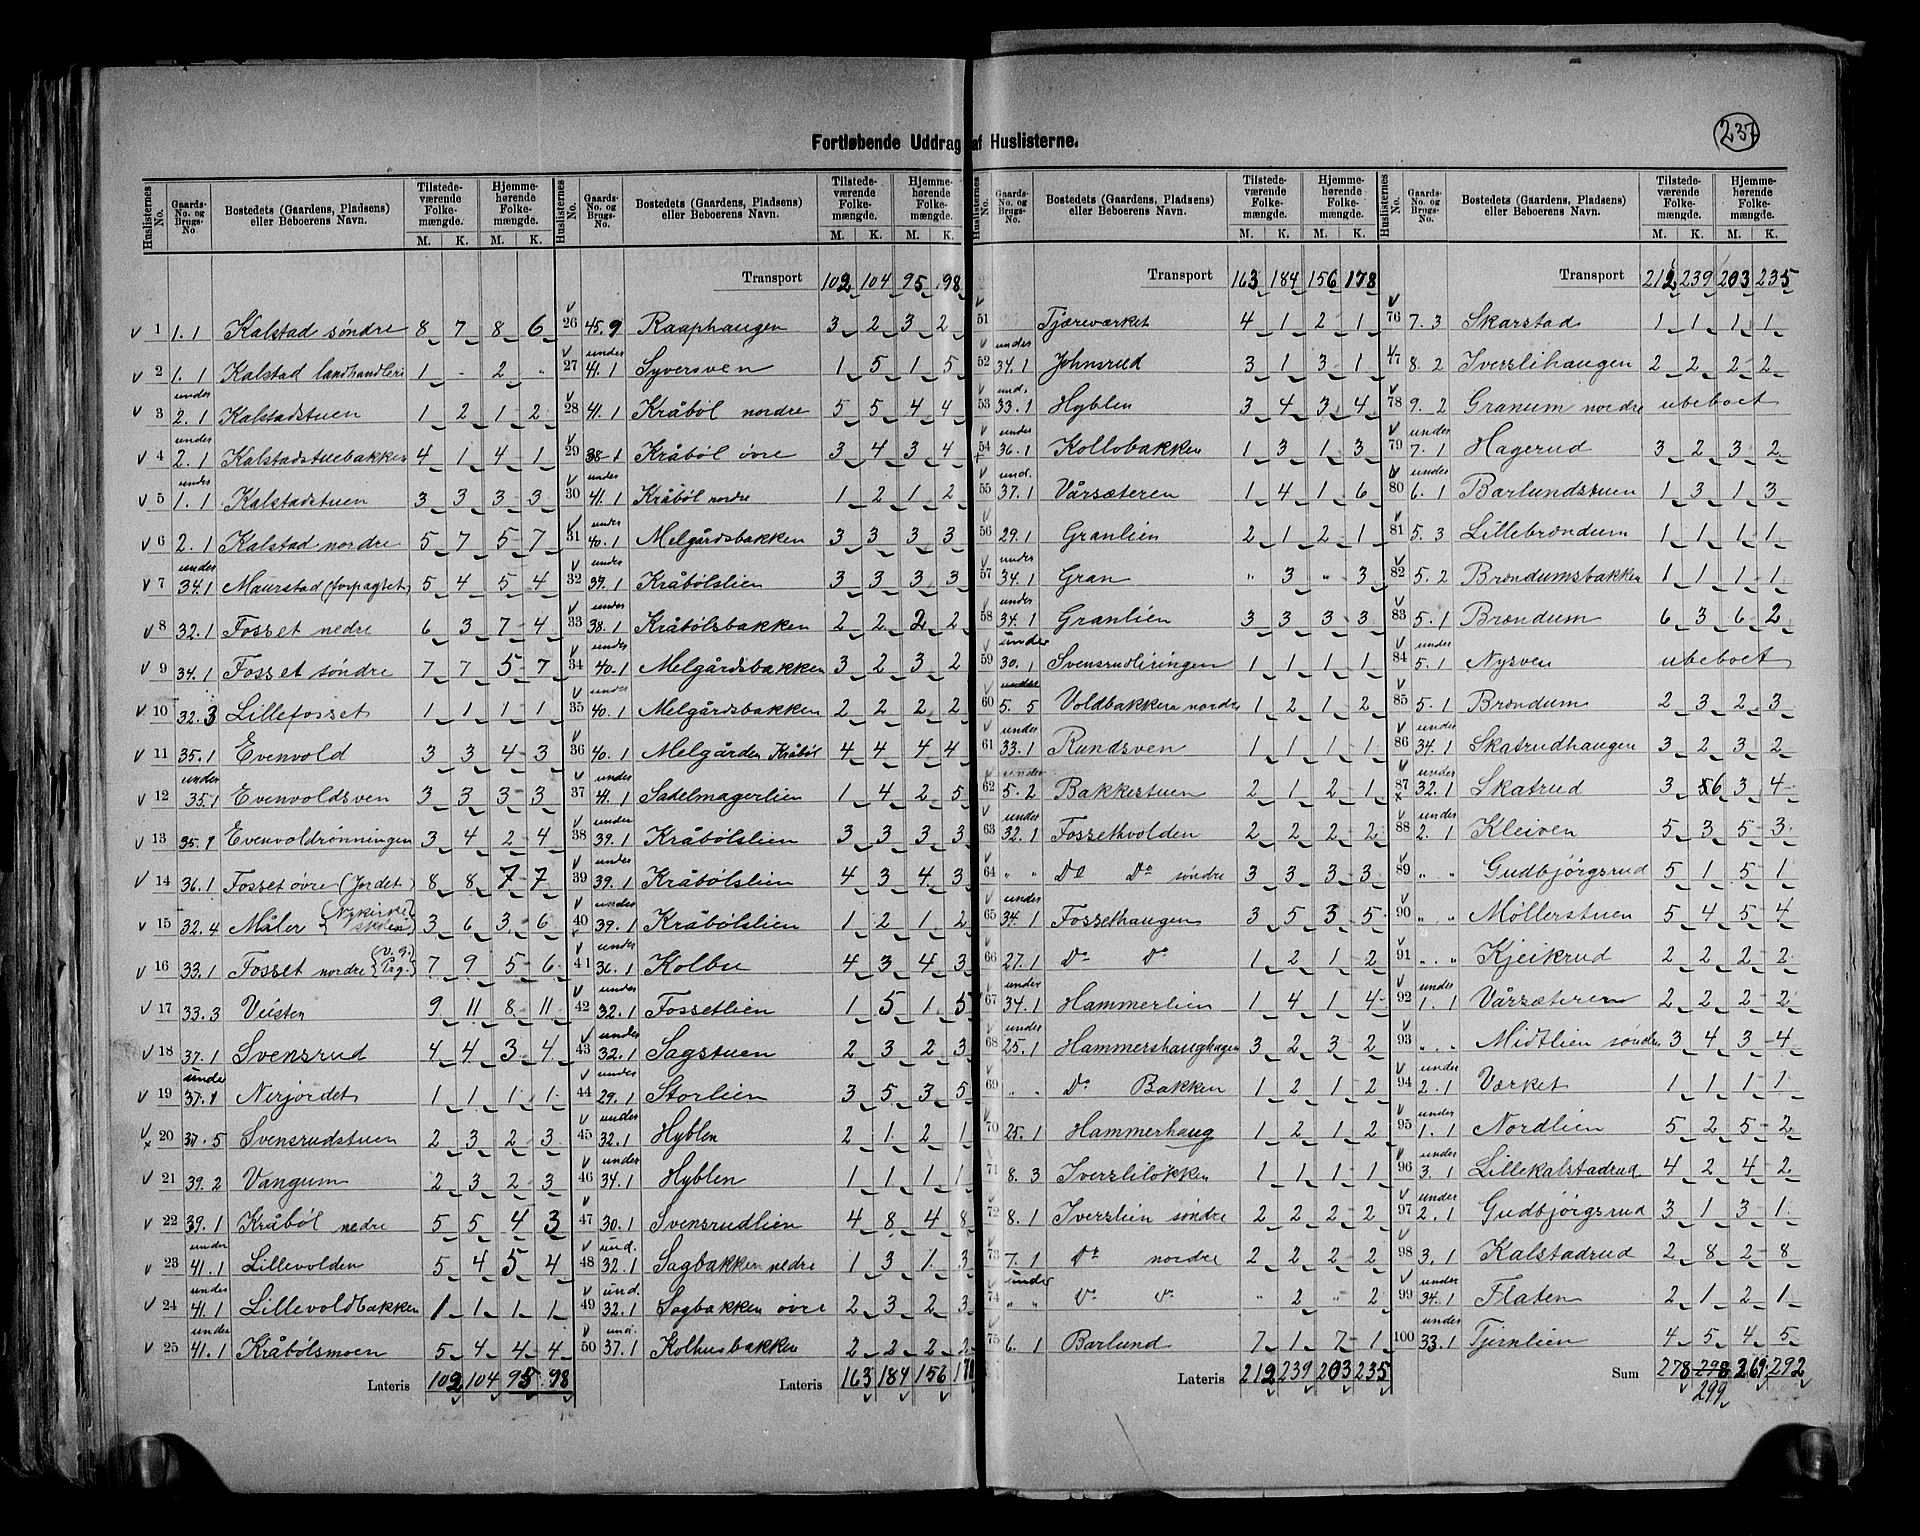 237
Fortløbende Uddrag af Huslisterne.
Huslisternes No. Gaards-No. og Brugs-No Bostedets (Gaardens, Pladsens) eller Beboerens Navn. Tilstede-værende Folke-mængde. M. K. Hjemme-hørende Folke-mængde. M. K.
1 1.1 Kalstad søndre 8 7 8 6
2 1.1 Kalstad landhandleri 1 - 2 "
3 under 2.1 Kalstadstuen 1 2 1 2
4 under 2.1 Kalstadstuebakken 4 1 4 1
5 under 1.1 Kalstadstuen 3 3 3 3
6 2.1 Kalstad nordre 5 7 5 7
7 under 34.1 Maurstad (forpagtet) 5 4 5 4
8 32.1 Fosset nedre 6 3 7 4
9 34.1 Fosset søndre 7 7 5 7
10 32.3 Lillefosset 1 1 1 1
11 35.1 Evenvold 3 3 4 3
12 under 35.1 Evenvoldsven 3 3 3 3
13 35.1 Evenvoldrønningen 3 4 2 4
14 36.1 Fosset øvre (Jordet) 8 8 7 7
15 32.4 Måler {Nykirke skolen} 3 6 3 6
16 33.1 Fosset nordre (V.G. Prg.) 7 9 5 6
17 33.3 Veisten 9 11 8 11
18 37.1 Svensrud 4 4 3 4
19 under 37.1 Nerjordet 1 1 1 1
20 37.5 Svensrudstuen 2 3 2 3
21 39.2 Vangum 2 3 2 3
22 39.1 Kråbøl nedre 5 5 4 3
23 under 41.1 Lillevolden 5 4 5 4
24 under 41.1 Lillevoldbakken 1 1 1 1
25 under 41.1 Kråbølsmoen 5 4 4 4
Lateris 102 104 95 98
Huslisternes No. Gaards-No. og Brugs-No. Bostedets (Gaardens, Pladsens) eller Beboerens Navn. Tilstede-værende Folke-mængde. M. K. Hjemme-hørende Folke-mængde. M. K.
Transport 102 104 95 98
26 45.9 Raaphaugen 3 2 3 2
27 under 41.1 Syversven 1 5 1 5
28 41.1 Kråbøl nordre 5 5 4 4
29 38.1 Kråbøl øvre 3 4 3 4
30 under 41.1 Kråbøl nordre 1 2 1 2
31 under 40.1 Melgårdsbakken 3 3 3 3
32 under 39.1 Kråbølslien 3 3 3 3
33 under 38.1 Kråbølsbakken 2 2 2 2
34 under 40.1 Melgårdsbakken 3 2 3 2
35 under 40.1 Melgårdsbakken 2 2 2 2
36 40.1 Melgården Kråbøl 4 4 4 4
37 under 41.1 Sadelmagerlien 1 4 2 5
38 under 39.1 Kråbølslien 3 3 3 3
39 under 39.1 Kråbølslien 4 3 4 3
40 under 39.1 Kråbølslien 1 2 1 2
41 under 36.1 Kolbu 4 3 4 3
42 under 32.1 Fossetlien 1 5 1 5
43 under 32.1 Sagstuen 2 3 2 3
44 under 29.1 Storlien 3 5 3 5
45 under 32.1 Hyblen 2 1 2 1
46 under 34.1 Hyblen 1 1 1 1
47 30.1 Svensrudlien 4 8 4 8
48 und. 32.1 Sagbakken nedre 1 3 1 3
49 und. 32.1 Sagbakken øvre 2 3 2 3
50 und. 37.1 Kolhusbakken 2 2 2 2
Lateris 163 184 156 178
No. Gaards-No. og Brugs-No. Bostedets (Gaardens, Pladsens) eller Beboerens Navn. Tilstede-værende Folke-mængde. M. K. Hjemme-hørende Folke-mængde. M. K.
Transport 163 184 156 178
51 Tjæreværket 4 1 2 1
52 under 34.1 Johnsrud 3 1 3 1
53 und. 33.1 Hyblen 3 4 3 4
54 under 36.1 Kollobakken 1 3 1 3
55 und. 37.1 Vårsæteren 1 4 1 6
56 29.1 Granlien 2 1 2 1
57 under 34.1 Gran " 3 " 3
58 under 34.1 Granlien 3 3 3 3
59 under 30.1 Svensrudliringen 1 1 1 1
60 under 5.5 Voldbakken nordre 1 2 1 2
61 under 33.1 Rundsven 1 1 1 1
62 under 5.2 Bakkestuen 2 1 2 1
63 under 32.1 Fossethvolden 2 2 2 2
64 " " Do Do søndre 3 3 3 3
65 under 34.1 Fossethaugen 3 5 3 5
66 27.1 Do Do 1 2 1 2
67 under 34.1 Hammerlien 1 4 1 4
68 under 25.1 Hammershaughagen 3 2 3 2
69 " " Do Bakken 1 2 1 2
70 25.1 Hammerhaug 1 2 1 2
71 8.3 Iversliløkken 1 1 1 1
72 8.1 Iverslien søndre 2 2 2 2
73 7.1 Do nordre 2 2 2 2
74 under " " Do Do " 2 " 2
75 6.1 Barlund 7 1 7 1
Lateris 212 239 203 235
Huslisternes No. Gaards-No. og Brugs-No. Bostedets (Gaardens, Pladsens) eller Beboerens Navn. Tilstede-værende Folke-mængde. M. K. Hjemme-hørende Folke-mængde. M. K.
Transport 212 239 203 235
76 7.3 Skarstad 1 1 1 1
77 8.2 Iverslihaugen 2 2 2 2
78 9.2 Granum nordre ubeboet
79 under 7.1 Hagerud 3 2 3 2
80 under 6.1 Barlundstuen 1 3 1 3
81 5.3 Lillebrøndum 1 1 1 1
82 5.2 Brøndumsbakken 1 1 1 1
83 5.1 Brøndum 6 3 6 2
84 under 5.1 Nysven ubeboet
85 5.1 Brøndum 2 3 2 3
86 under 34.1 Skatrudhaugen 3 2 3 2
87 under 32.1 Skatrud 3 6 3 4
88 under 2.1 Kleiven 5 3 5 3
89 " " Gudbjørgsrud 5 1 5 1
90 " " Møllerstuen 5 4 5 4
91 " " Kjeikrud 2 2 2 2
92 under 1.1 Vårsæteren 2 2 2 2
93 " " Midtlien søndre 3 4 3 4
94 under 2.1 Værket 1 1 1 1
95 under 1.1 Nordlien 5 2 5 2
96 under 3.1 Lillekalstadrud 4 2 4 2
97 under 2.1 Gudbjørgsrud 3 1 3 1
98 3.1 Kalstadrud 2 8 2 8
99 under 34.1 Flaten 2 1 2 1
100 under 33.1 Tjernlien 4 5 4 5
Sum 278 298 269 292
299